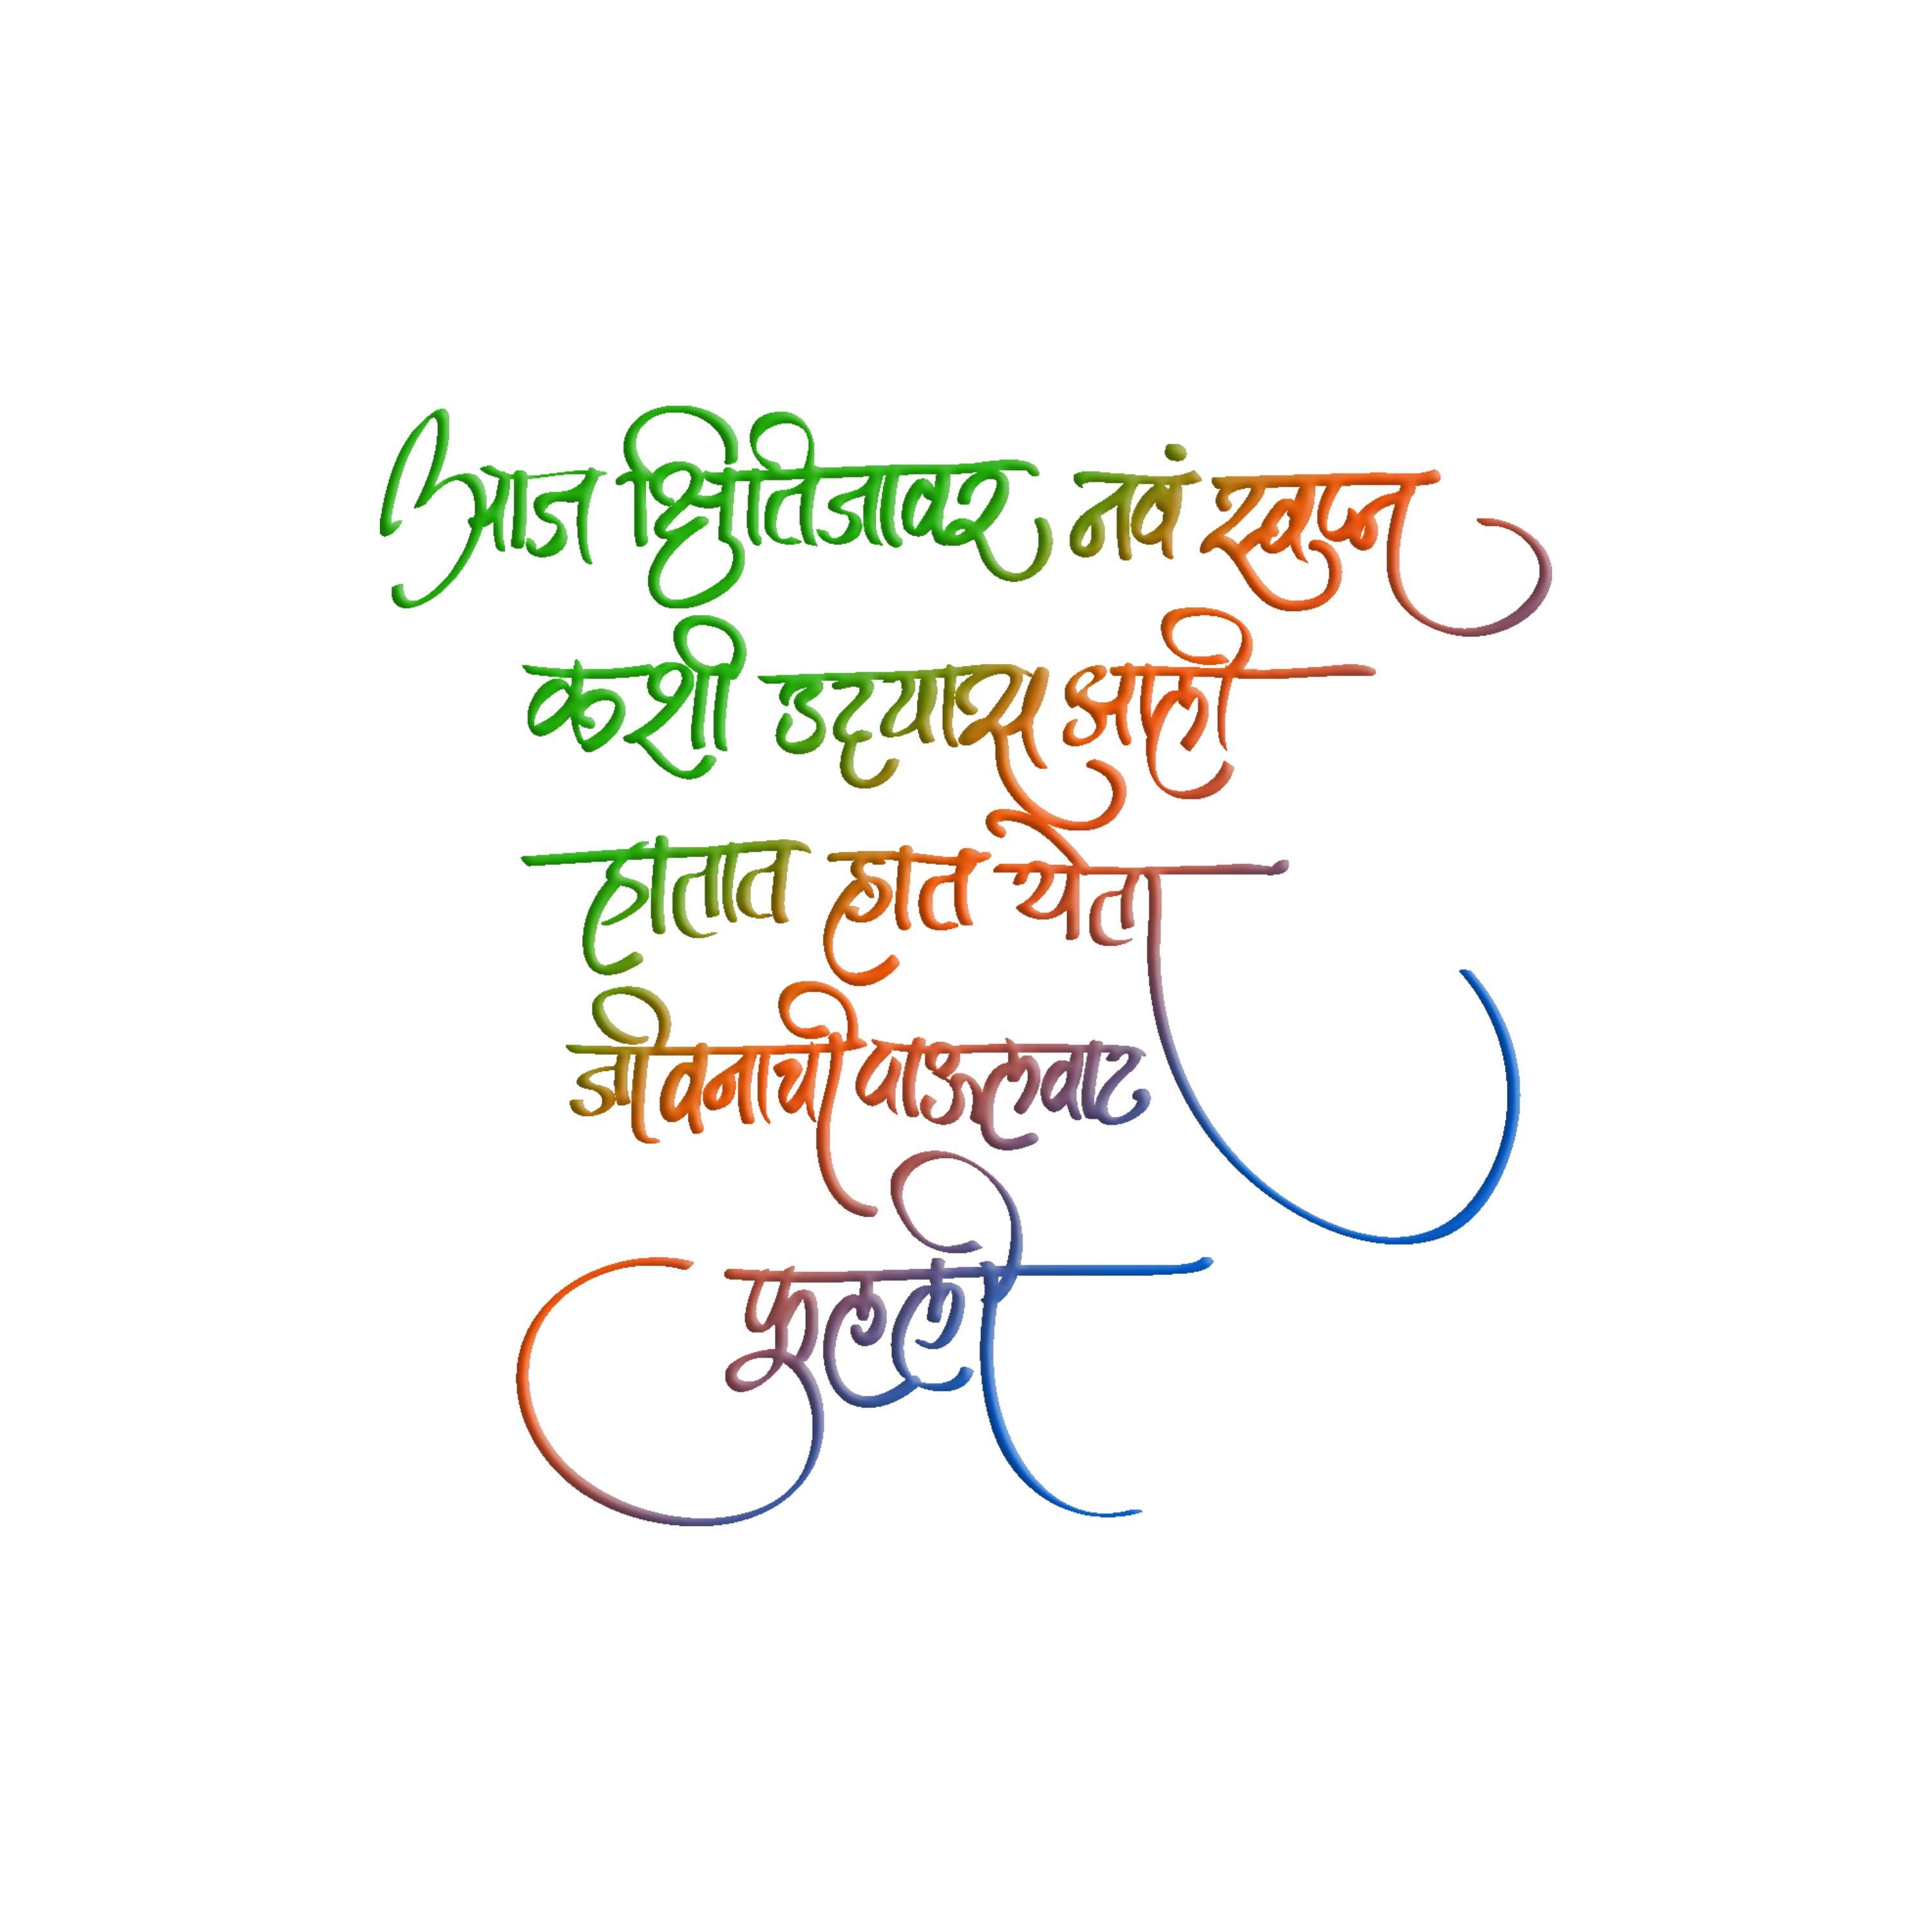 आज क्षितिजावर नवं स्वप्न
कशी उदयास आली
हातात हात येता
जीवनाची पाऊलवाट
फूलली